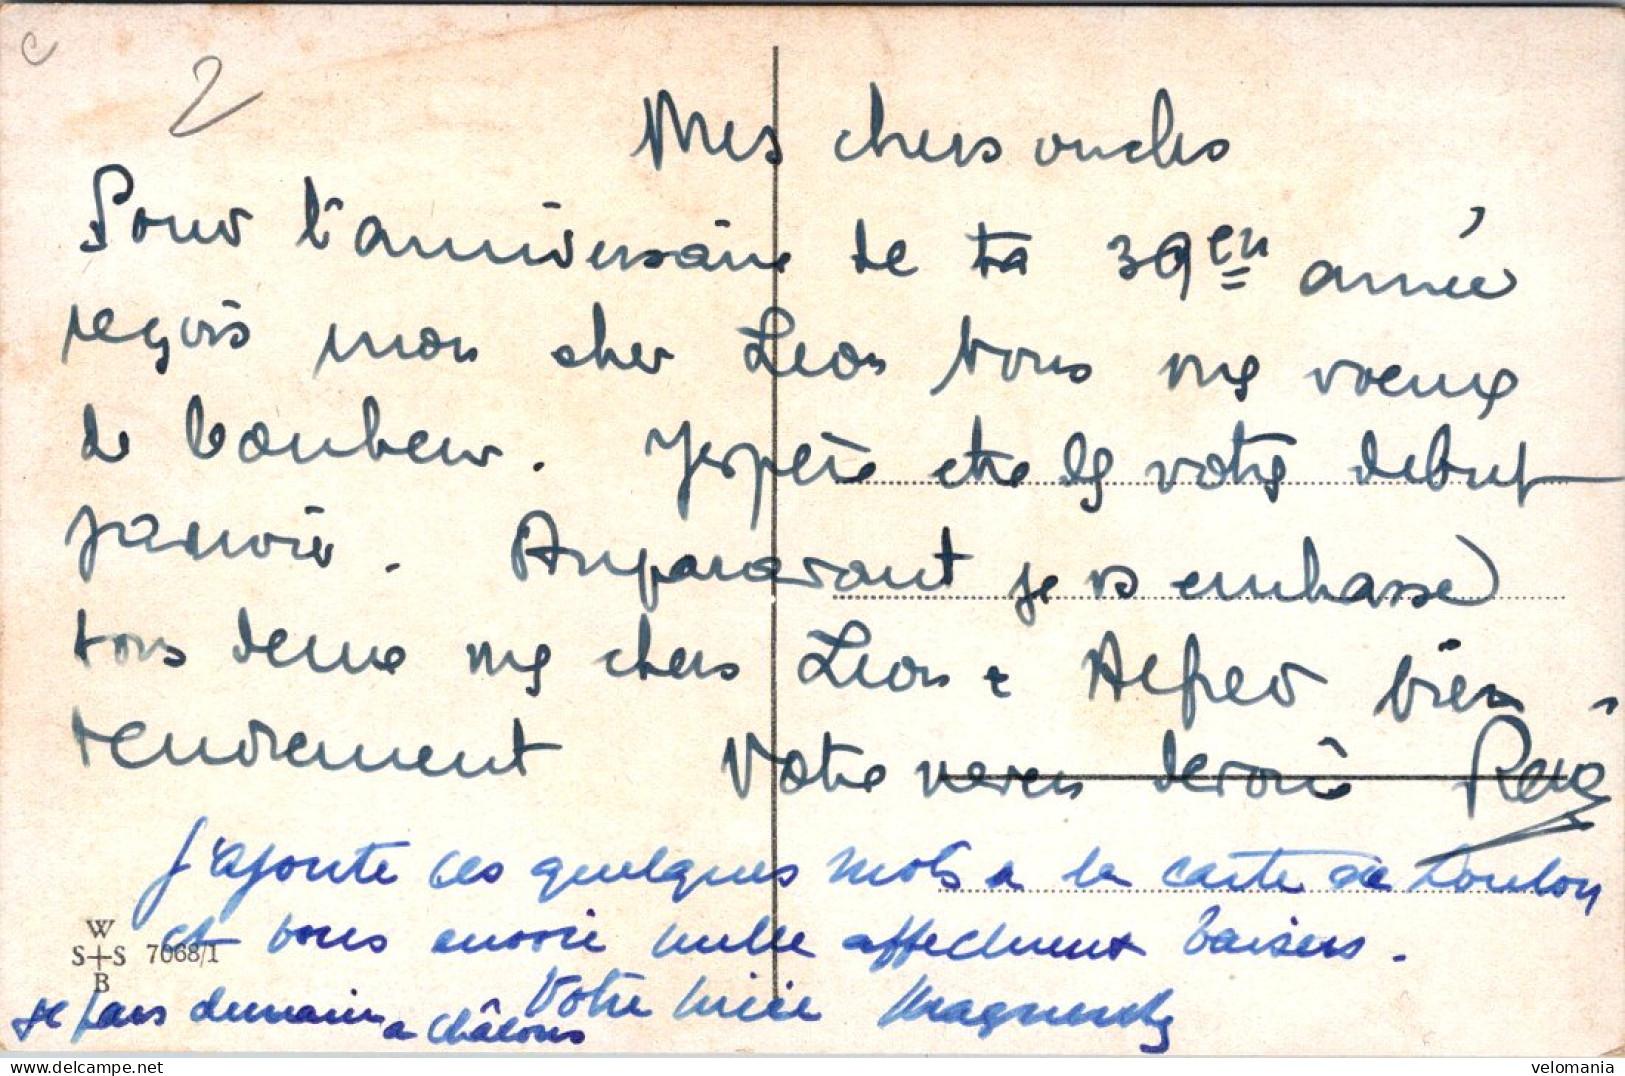 c
2
Mes chers oncles
Pour l'anniversaire de ta 39en année
reçois mon cher Leon tous mes voeux
de bonheur. J'espère etre ds votre debut
janvier. Auparavant je vs embrasse
tous deux mes chers Leon & Alfred bien
tendrement Votre neveu devoué
J'ajoute ces quelques mots a la carte de Loulou
et vous envoie mille affectueux baisers.
Votre nièce
je pars demain a Châlons
W
S+S 7068/1
B
delcampe.net
velomania